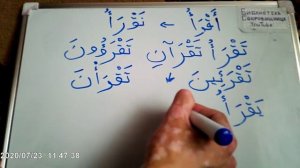 أَقْرَأُ ← نَقْرَأُ
تَقْرَأُ تَقْرَآنِ تَقْرَؤُونَ
تَقْرَئِينَ ↙ تَقْرَأْنَ
يَقْرَأُ
Библиотека
Сокровищница
YouTube
2020/07/23 11:47:38